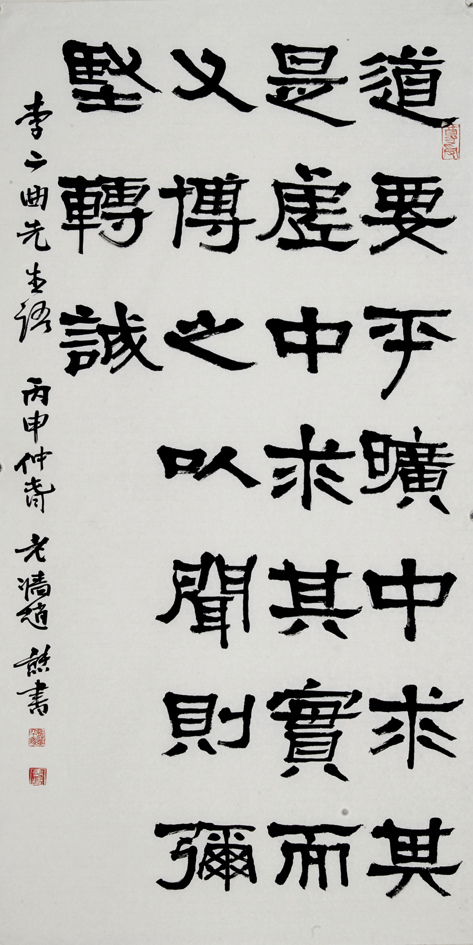 道要乎曠中求其
是虛中求其實而
又博之以聞則彌
堅轉誠
李二曲先生語 丙申仲春 老牆趙 書